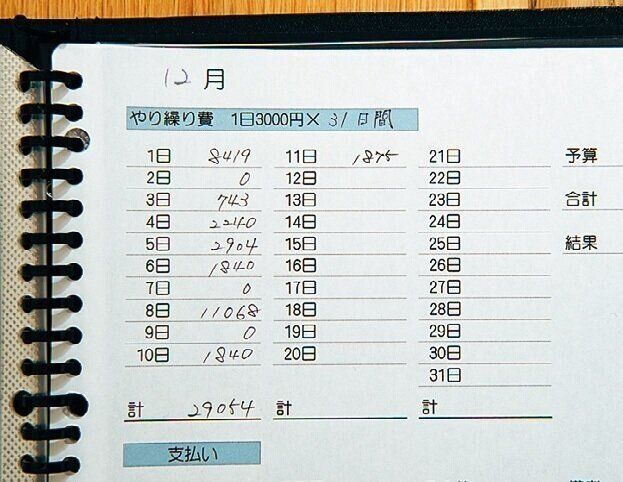 12月
やり繰り費 1日3000円× 31日間
1日 8419 11日 1875 21日 予算
2日 0 12日 22日
3日 743 13日 23日 合計
4日 2240 14日 24日
5日 2904 15日 25日 結果
6日 1840 16日 26日
7日 0 17日 27日
8日 11068 18日 28日
9日 0 19日 29日
10日 1840 20日 30日
31日
計 29054 計 計
支払い